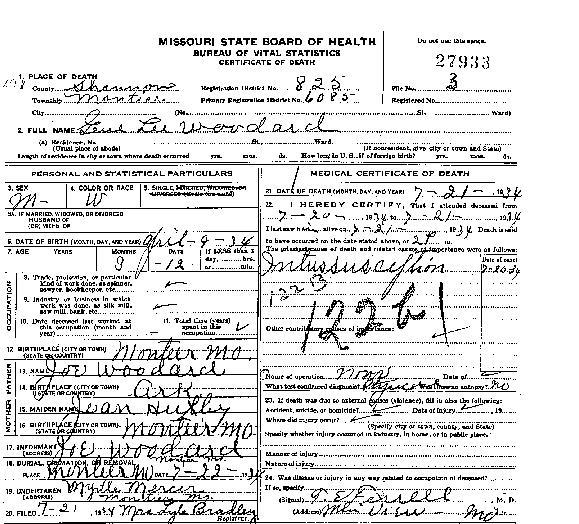 MISSOURI STATE BOARD OF HEALTH
BUREAU OF VITAL STATISTICS
CERTIFICATE OF DEATH
Do not use this space.
27933
1. PLACE OF DEATH
County Shannon Registration District No. 825 File No. 3
Township Montier Primary Registration District No. 6085 Registered No.
City (No. St. Ward)
2. FULL NAME Gene Lee Woodard
(a) Residence, No. St. Ward.
(Usual place of abode) (If nonresident, give city or town and State)
Length of residence in city or town where death occurred yrs. mos. ds. How long in U. S., if of foreign birth? yrs. mos. ds.
PERSONAL AND STATISTICAL PARTICULARS
3. SEX M- 4. COLOR OR RACE W 5. SINGLE, MARRIED, WIDOWED, OR
5A. IF MARRIED, WIDOWED, OR DIVORCED
HUSBAND OF
(OR) WIFE OF
6. DATE OF BIRTH (MONTH, DAY, AND YEAR) April-9-34
7. AGE YEARS MONTHS DAYS If LESS than 1
day, hrs.
or min.
3 -12
OCCUPATION
8. Trade, profession, or particular
kind of work done, as spinner,
sawyer, bookkeeper, etc.
9. Industry or business in which
work was done, as silk mill,
saw mill, bank, etc.
10. Date deceased last worked at
this occupation (month and
year)
11. Total time (years)
spent in this
occupation
12. BIRTHPLACE (CITY OR TOWN) Montier Mo.
(STATE OR COUNTRY)
FATHER
13. NAME Joe Woodard
14. BIRTHPLACE (CITY OR TOWN) Ark
(STATE OR COUNTRY)
MOTHER
15. MAIDEN NAME
16. BIRTHPLACE (CITY OR TOWN) Montier Mo
(STATE OR COUNTRY)
17. INFORMANT Joe Woodard
(ADDRESS)
18. BURIAL, CREMATION, OR REMOVAL
PLACE Montier Mo DATE 7-22- 1934
19. UNDERTAKER Myrtle Mercer
(ADDRESS)
20. FILED 7-21 1934 Mrs Lyle Bradley
Registrar.
MEDICAL CERTIFICATE OF DEATH
21. DATE OF DEATH (MONTH, DAY, AND YEAR) 7-21- 1934
22. I HEREBY CERTIFY, That I attended deceased from
7-20- 1934 to 7-21- 1934
I last saw h alive on 7-21- 1934 Death is said
to have occurred on the date stated above, at m.
The principal cause of death and related causes of importance were as follows:
Date of onset
Intussusception 7-20-34
122B
Other contributory causes of importance:
Name of operation none Date of
What test confirmed diagnosis? Was there an autopsy? no
23. If death was due to external causes (violence), fill in also the following:
Accident, suicide, or homicide? Date of injury 19
Where did injury occur?
(Specify city or town, county, and State)
Specify whether injury occurred in industry, in home, or in public place.
Manner of injury
Nature of injury
24. Was disease or injury in any way related to occupation of deceased?
If so, specify
(Signed) M. D.
(Address) Mtn View Mo